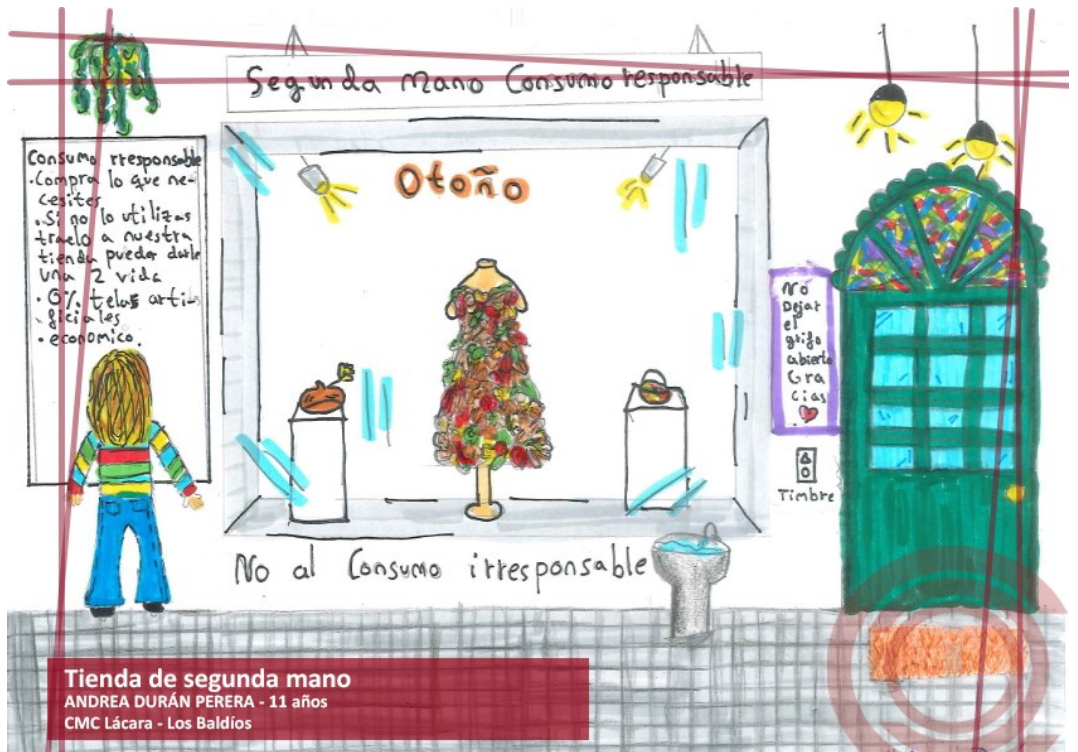 Segunda mano Consumo responsable
Consumo rresponsable
·Compra lo que ne-
cesites
·Si no lo utilizas
traelo a nuestra
tienda pueder darle
una 2 vida
·0% telas arti-
ficiales
·economico.
Otoño
No
Dejar
el
grifo
abierto
Gra
cias
Timbre
No al Consumo irresponsable
Tienda de segunda mano
ANDREA DURÁN PERERA - 11 años
CMC Lácara - Los Baldíos